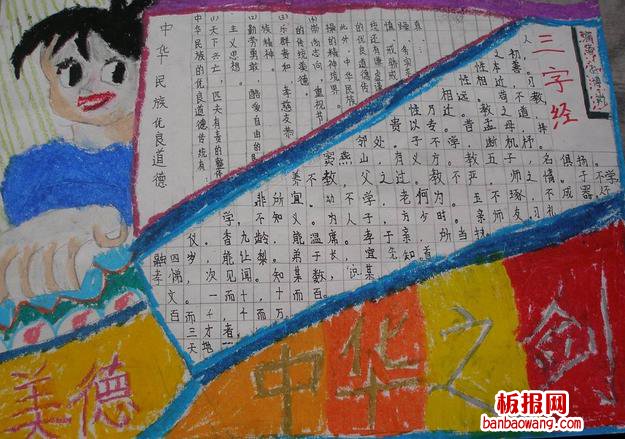 三字经
中华民族优良道德
中华民族的优良道德传统有:
(1)天下兴亡,匹夫有责的整体
主义思想
(2)勤劳勇敢 酷爱自由的民
族精神
(3)乐群贵和 孝慈友恭
的传统美德
崇尚志向 重视节
操的精神境界
此外,中华民族
的优良道德传
统还有谦虚谨
慎 戒骄戒
人
之初,
性本善。
性相近,习
相远。苟不教,
性乃迁。教之道,
贵以专。昔孟母,择
邻处。子不学,断机杼。
窦燕山,有义方。教五子,名俱扬。
养不教,父之过。教不严,师之惰。子不学
非所宜。幼不学,老何为。玉不琢,不成器。
学,不知义。为人子,方少时。亲师友,习礼
仪。香九龄,能温席。孝于亲,所当执
融四岁,能让梨。弟于长,宜先知。首
孝悌,次见闻。知某数,识某
文。一而十,十而百。
百而千,千而万。
三才者,
天地
美德
中华之
板报网
banbaowang.com